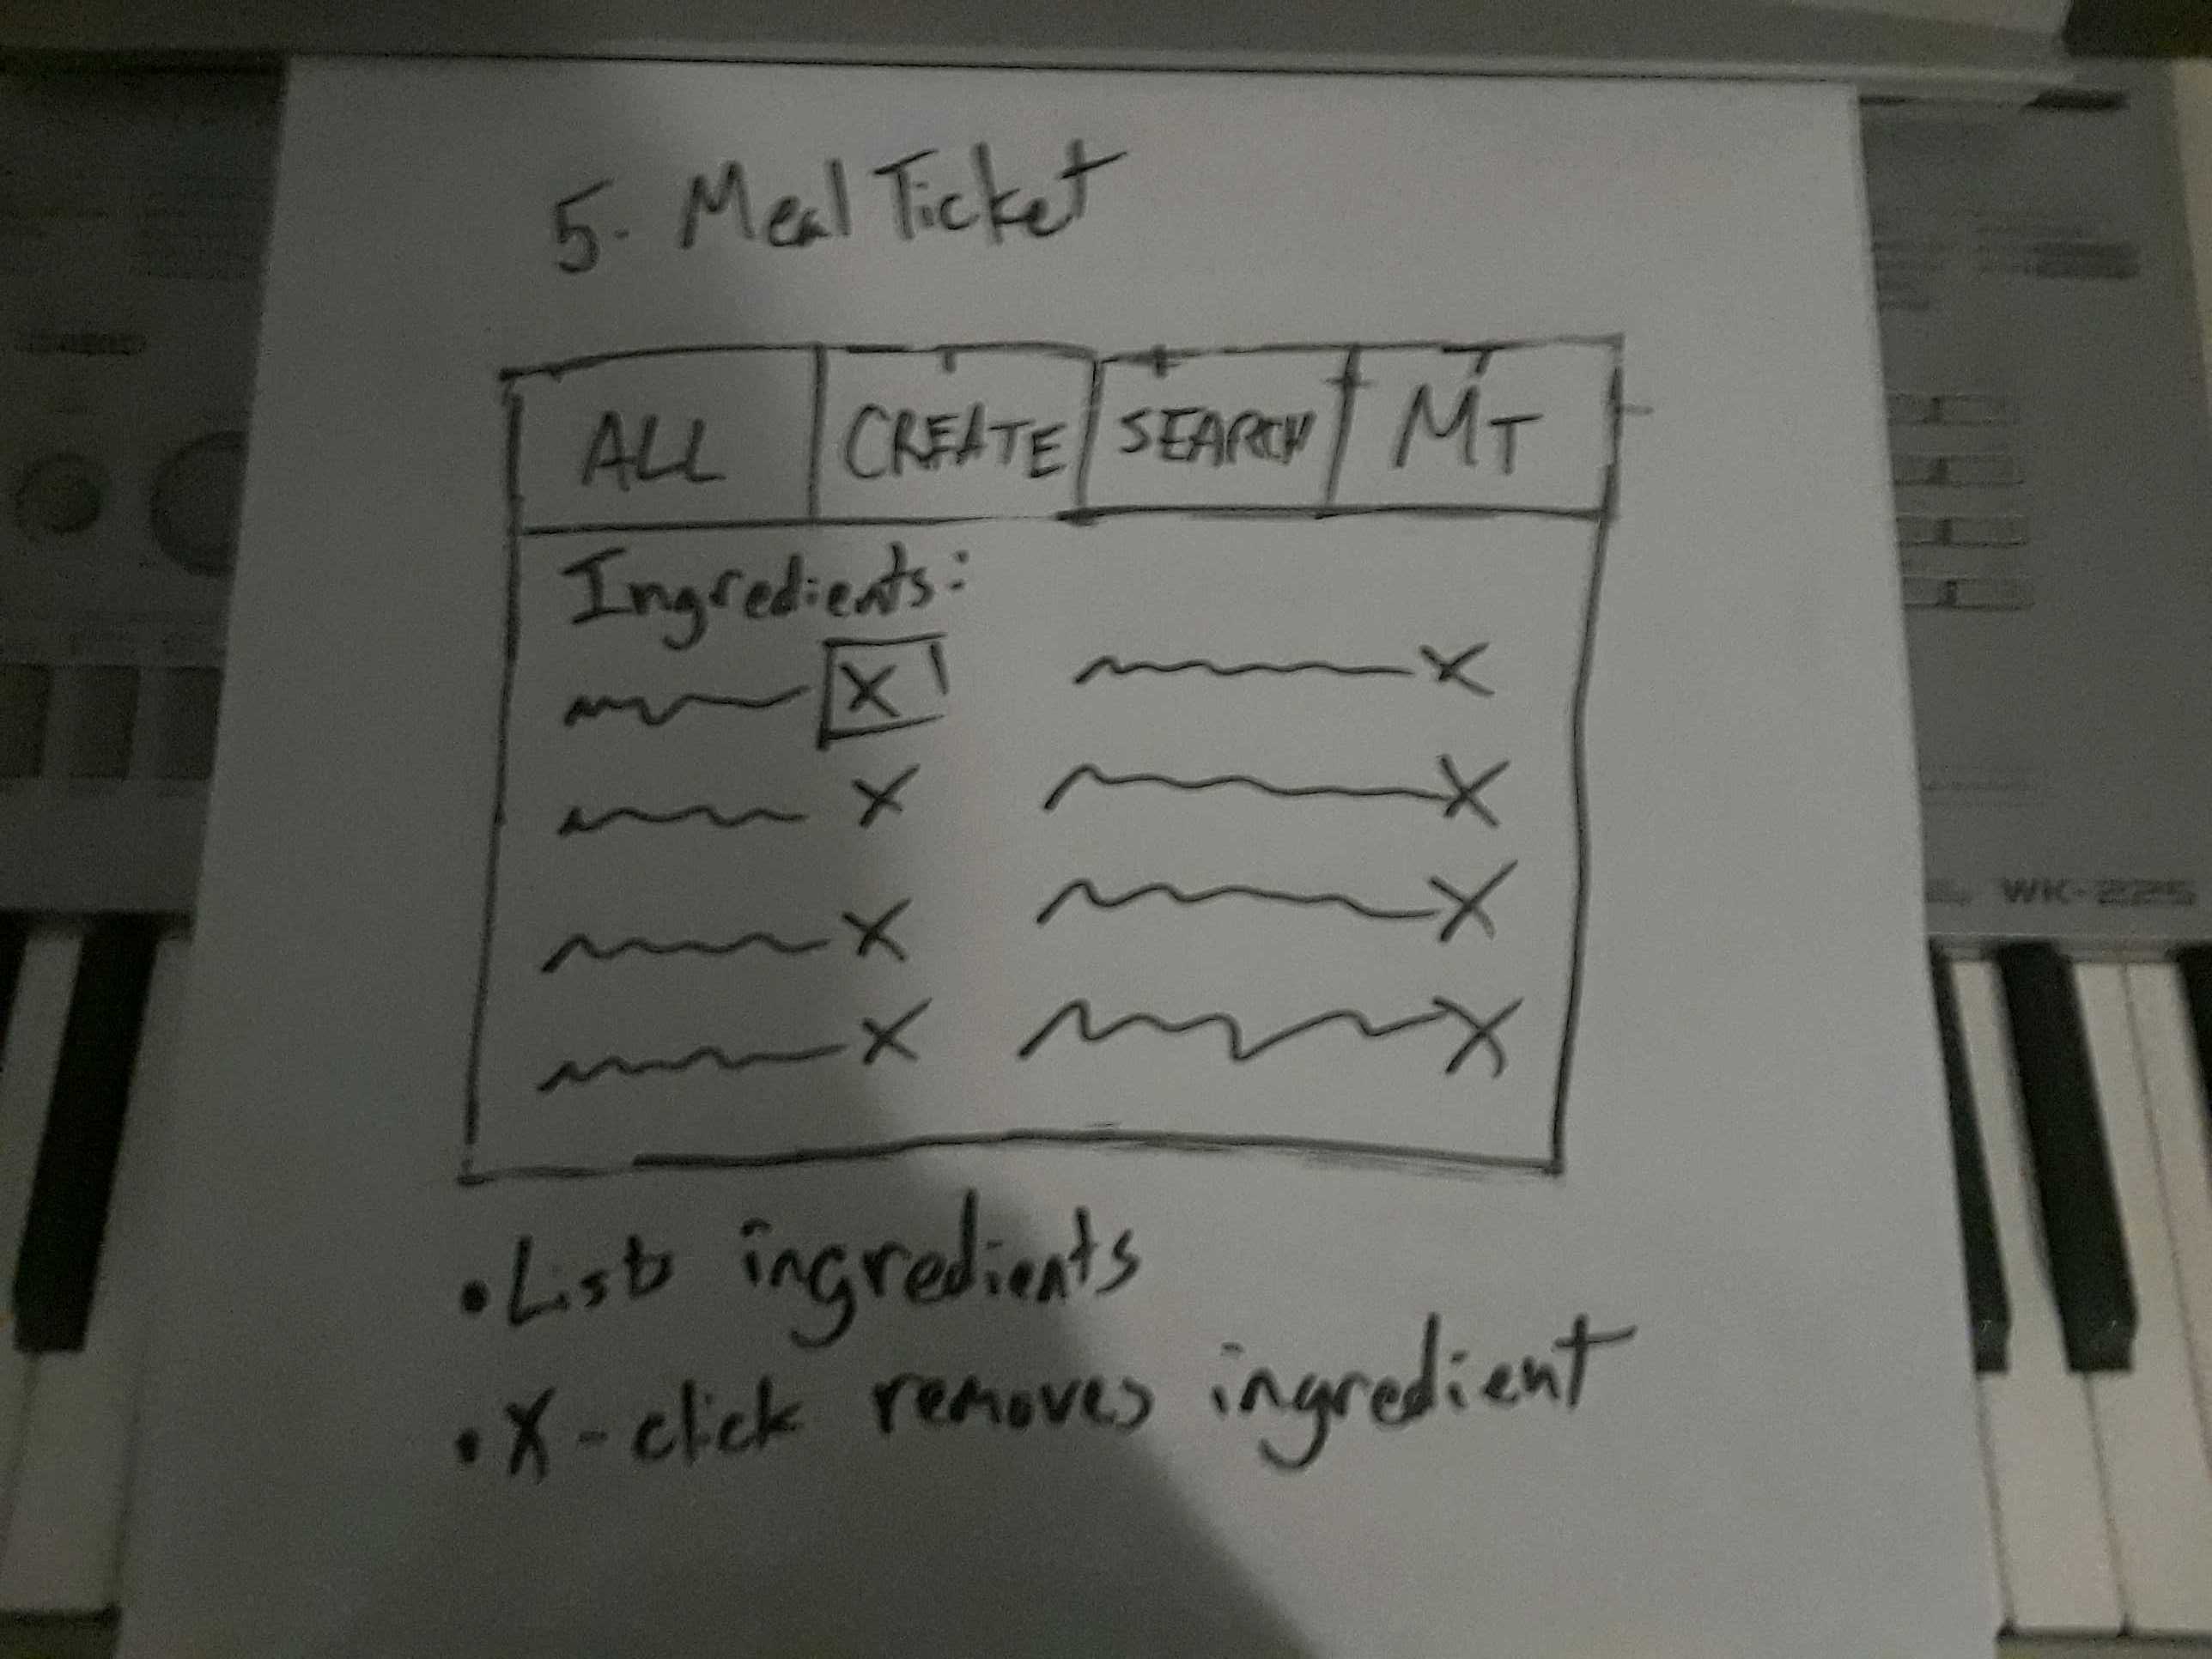 5. Meal Ticket
ALL CREATE SEARCH MT
Ingredients:
X X
X X
X X
X X
WK-225
• Lists ingredients
• X - click removes ingredient